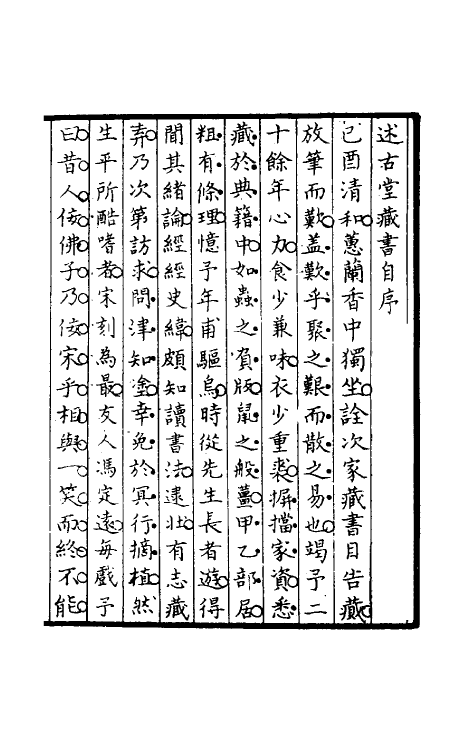 述古堂藏書自序
己酉清和蕙蘭香中獨坐詮次家藏書目告藏
放筆而歎蓋歎乎聚之艱而散之易也竭予二
十餘年心力食少兼味衣少重裘摒擋家資悉
藏於典籍中如蟲之負版鼠之般薑甲乙部居
粗有條理憶予年甫驅烏時從先生長者遊得
聞其緒論經經史緯頗知讀書法逮壯有志藏
弆乃次第訪求問津知塗幸免於冥行摘植然
生平所酷嗜者宋刻為最友人馮定遠每戲予
曰昔人佞佛子乃佞宋乎相與一笑而終不能